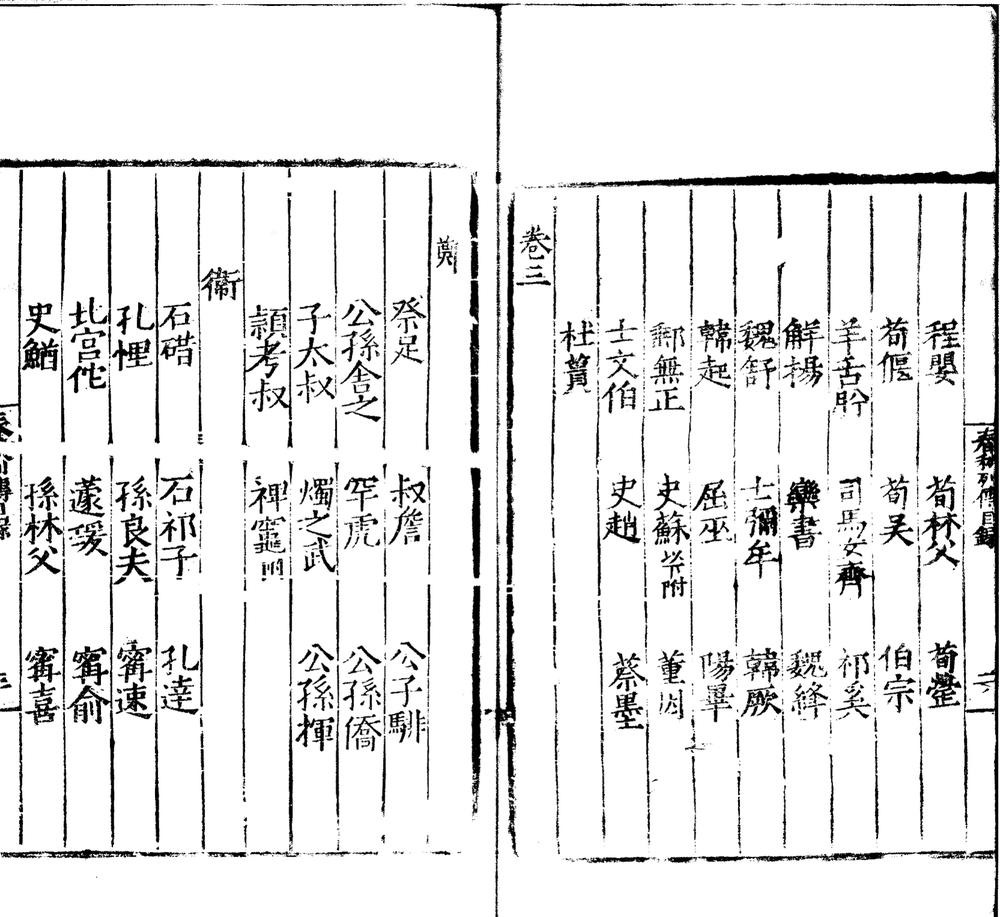 春秋列傳目錄
程嬰 荀林父 荀罃
荀偃 荀吳 伯宗
羊舌肸 司馬女齊 祁奚
解楊 欒書 魏絳
魏舒 士彌牟 韓厥
韓起 屈巫 陽畢
郵無正 史蘇 附 董因
士文伯 史趙 蔡墨
杜蕢
卷三
鄭
祭足 叔詹 公子騑
公孫舍之 罕虎 公孫僑
子太叔 燭之武 公孫揮
頴考叔 裨竈 附
衛
石碏 石祁子 孔達
孔悝 孫良夫 甯速
北宮佗 蘧瑗 甯俞
史鰌 孫林父 甯喜